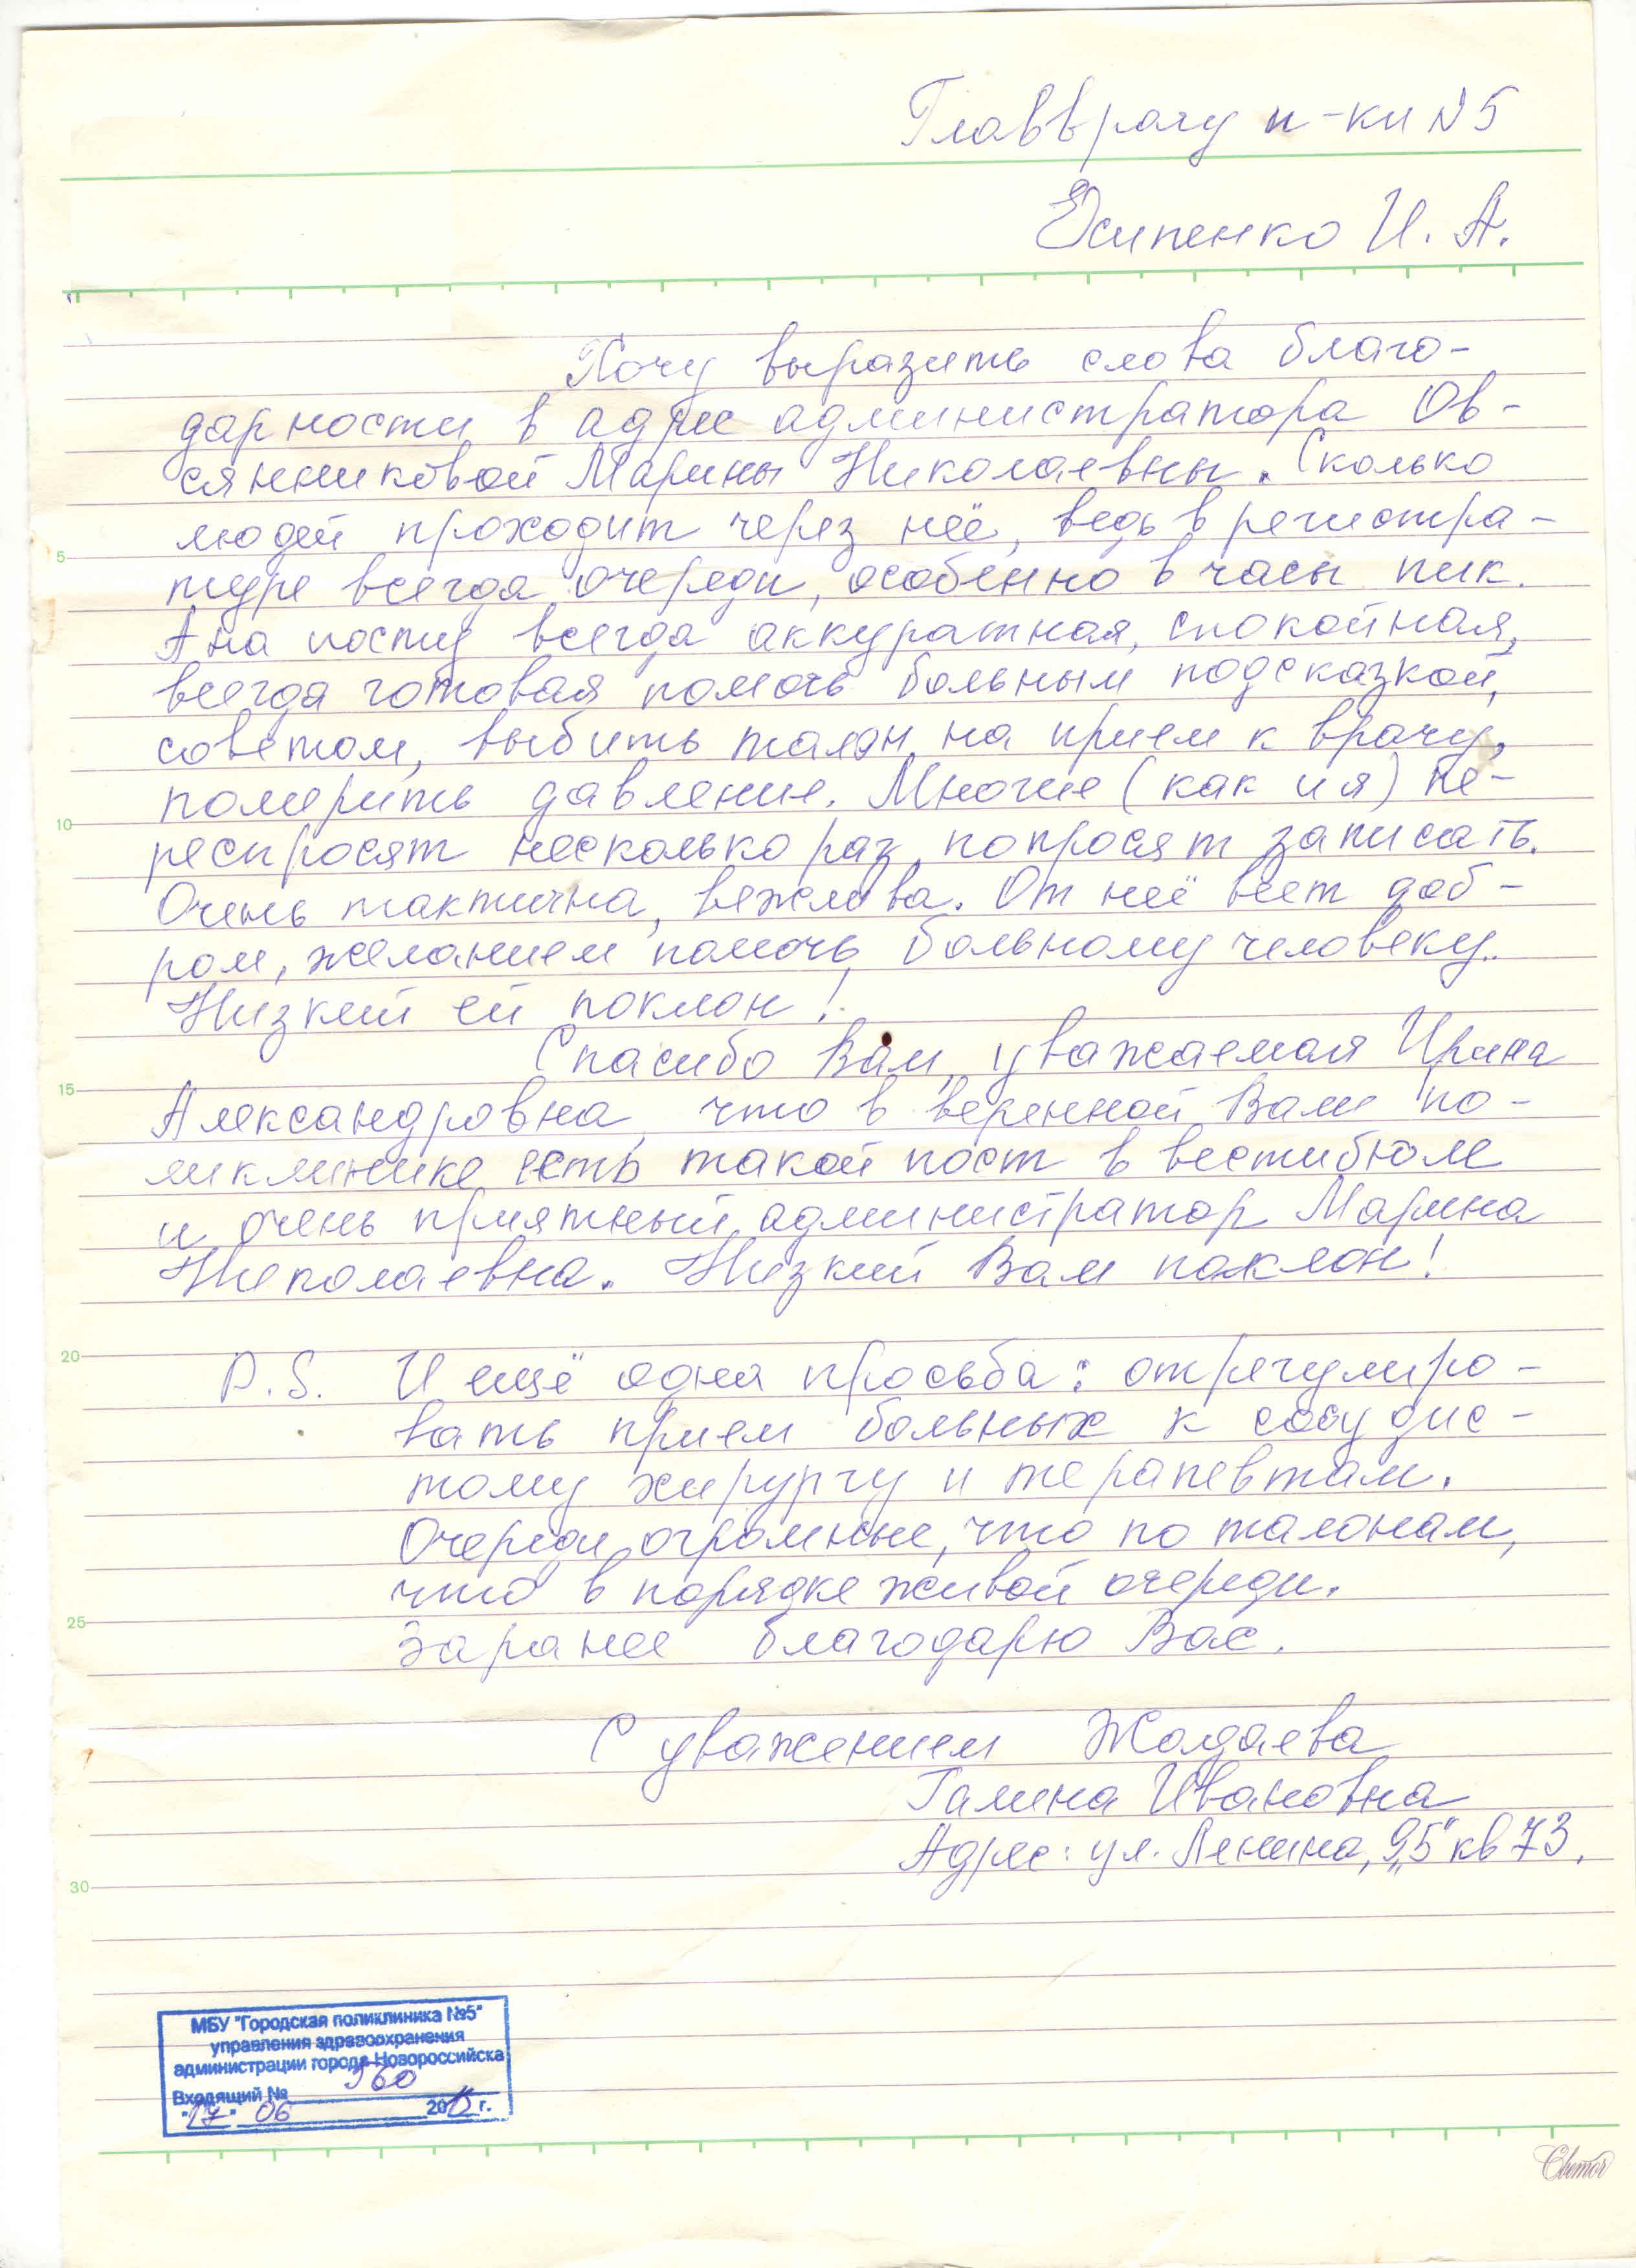 Главврачу п-ки N5
Есипенко И. А.
Хочу выразить слова благо-
дарности в адрес администратора Ов-
сянниковой Марины Николаевны. Сколько
людей проходит через неё, ведь в регистра-
туре всегда очереди, особенно в часы пик.
А на посту всегда аккуратная, спокойная,
всегда готовая помочь больным подсказкой,
советом, выбить талон на прием к врачу,
померить давление. Многие (как и я) пе-
респросят несколько раз, попросят записать.
Очень тактична, вежлива. От неё веет доб-
ром, желанием помочь больному человеку.
Низкий ей поклон!
Спасибо Вам, уважаемая Ирина
Александровна, что в веренной Вам по-
ликлинике есть такой пост в вестибюле
и очень приятный администратор Марина
Николаевна. Низкий Вам поклон!
P.S. И ещё одна просьба: отрегулиро-
вать прием больных к сосудис-
тому хирургу и терапевтам.
Очереди огромные, что по талонам,
что в порядке живой очереди.
Заранее благодарю Вас.
С уважением Жадаева
Галина Ивановна
Адрес: ул. Ленина, 9„5" кв 73.
МБУ "Городская поликлиника №5"
управления здравоохранения
администрации города Новороссийска
Входящий № 360
"17" 06 20 г.
5
10
15
20
25
30
Светоч